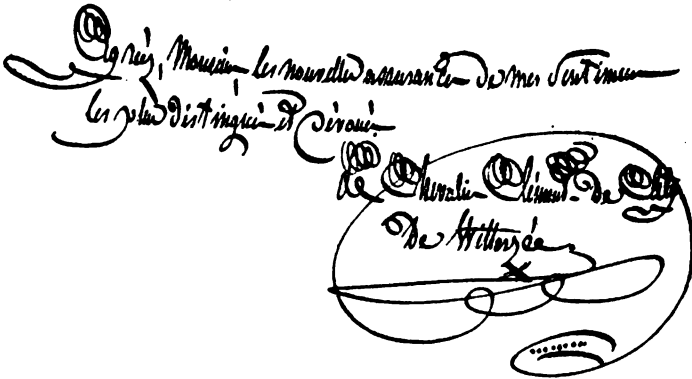 Agréez, Monsieur les nouvelles assurances de mes sentimens
les plus distingués et dévoués
Le Chevalier Clément De
De Witterzée